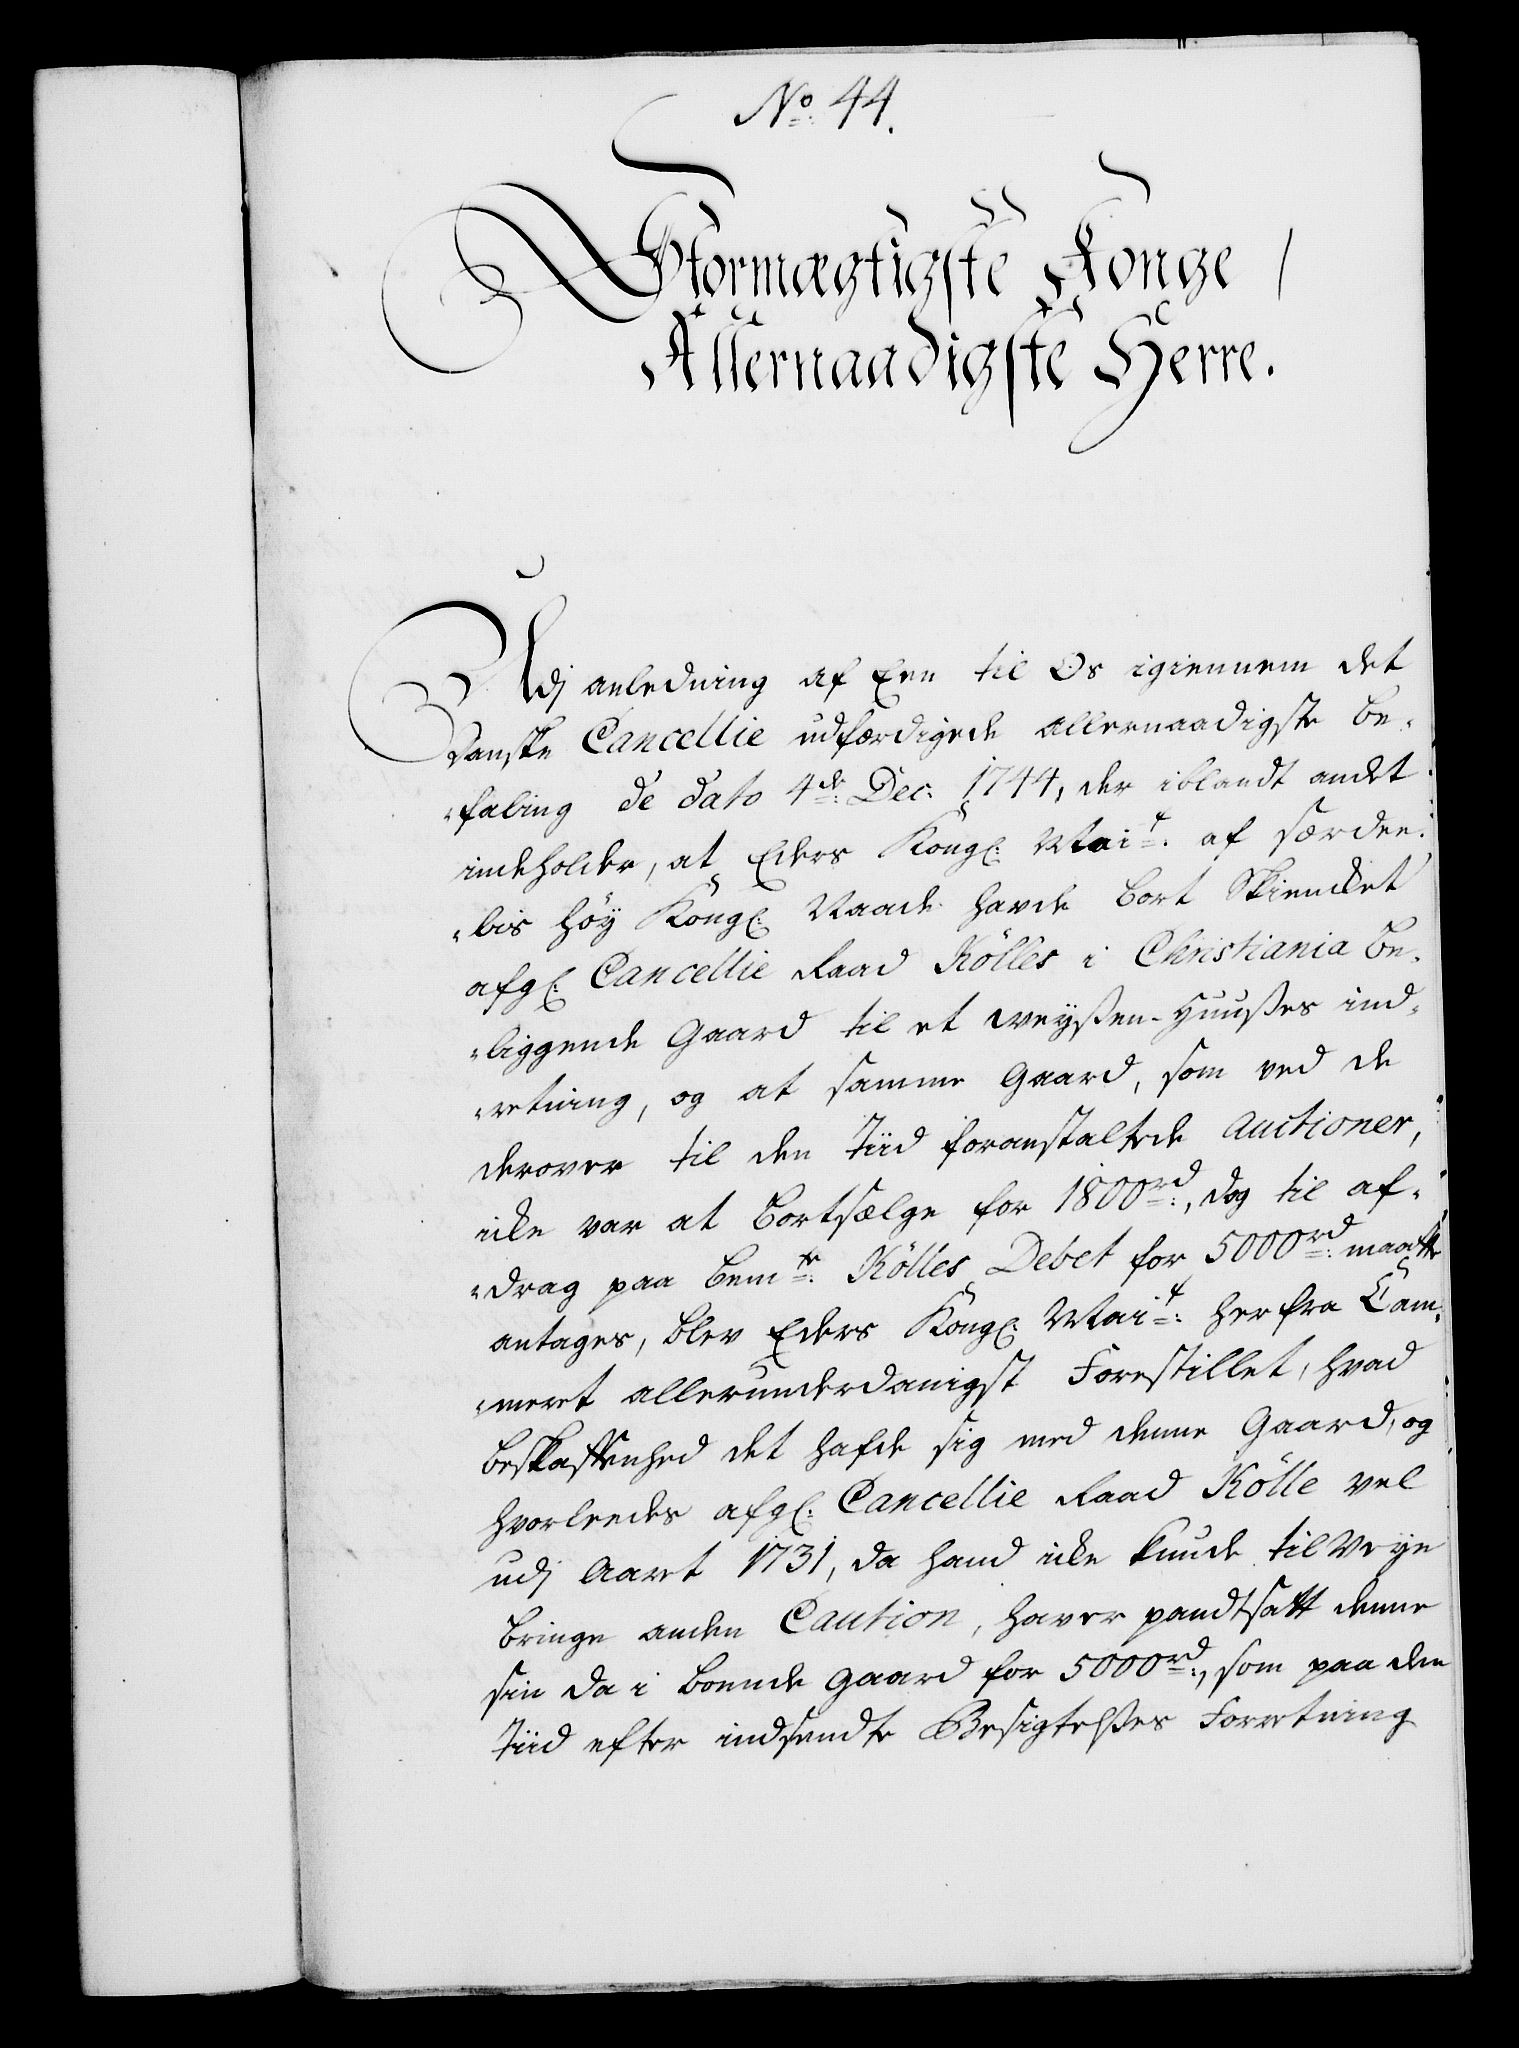 No. 44.
Stormægtigste Konge
Allernaadigste Herre.
Udj anledning af Een til Os igiennem det
Danske Cancellie udfærdigede allernaadigste be-
-faling de dato 4de Dec: 1744, der iblandt andet
indeholder, at Eders Kongl: Mait: af særdee-
-lis höy Kongl: Naade havde bort skiencket
afgl: Cancellie Raad Kölles i Christiania be-
-liggende Gaard til et weyßen-Huußes ind-
-retning, og at samme Gaard, som ved de
derover til den Tiid foranstaltede Auctioner,
icke var at bortsælge for 1800rd:, dog til af-
-drag paa bemte: Kölles Debet for 5000rd: maatte
antages, blev Eders Kongl: Mait: her fra Cam-
-meret allerunderdanigst Forestillet, hvad
beskaffenhed det hafde sig med denne Gaard, og
hvorleedes afgl: Cancellie Raad Kölle vel
udj Aaret 1731, da hand icke kunde til Veye
bringe anden Caution, haver pandtsatt denne
sin da i boende Gaard for 5000rd:, som paa den
Tiid efter indsendte Besigtelßes Forretning